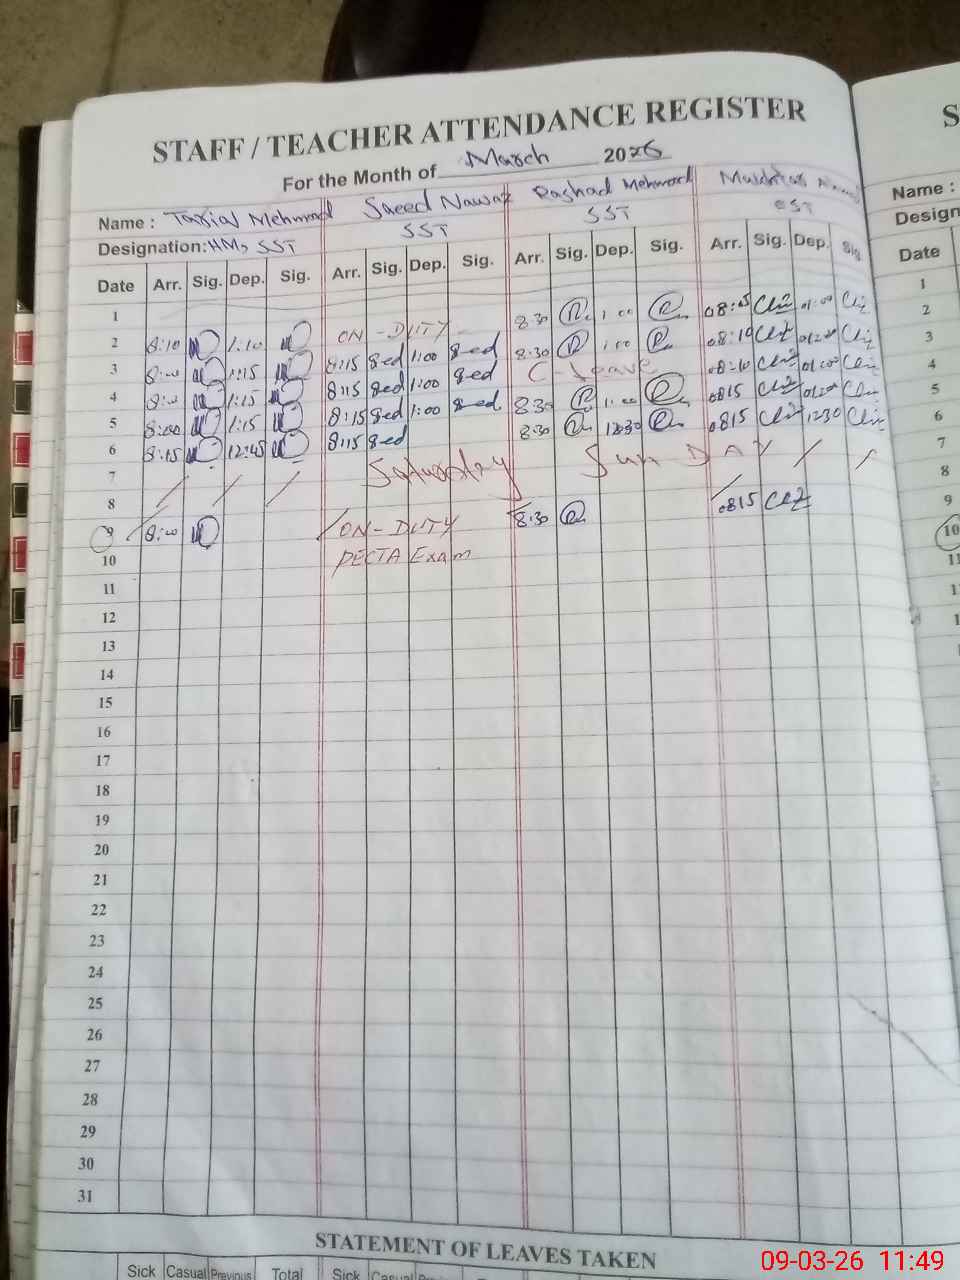 STAFF / TEACHER ATTENDANCE REGISTER
For the Month of March 2026
Name : Tariq Mehmood Saeed Nawaz Rashad Mehmood
Designation: HM, SST SST SST EST
Date Arr. Sig. Dep. Sig. Arr. Sig. Dep. Sig. Arr. Sig. Dep. Sig. Arr. Sig. Dep. Sig.
1
2 8:10 1:10 ON - DUTY 8:30 1:00 08:05 01:00
3 8:00 1:15 8:15 Sed 1:00 Sed 8:30 1:00 08:10 01:00
4 8:00 1:15 8:15 Sed 1:00 Sed C-leave 08:10 01:00
5 8:00 1:15 8:15 Sed 1:00 Sed 8:30 1:00 0815 01:00
6 8:15 12:45 8:15 Sed 8:30 12:30 0815 1230
7 Saturday SunDAY
8
9 8:00 ON-DUTY 8:30 0815
10 PECTA Exam
11
12
13
14
15
16
17
18
19
20
21
22
23
24
25
26
27
28
29
30
31
STATEMENT OF LEAVES TAKEN
Sick Casual Previous Total Sick Casual
S
Name :
Design
Date
1
2
3
4
5
6
7
8
9
10
11
09-03-26 11:49